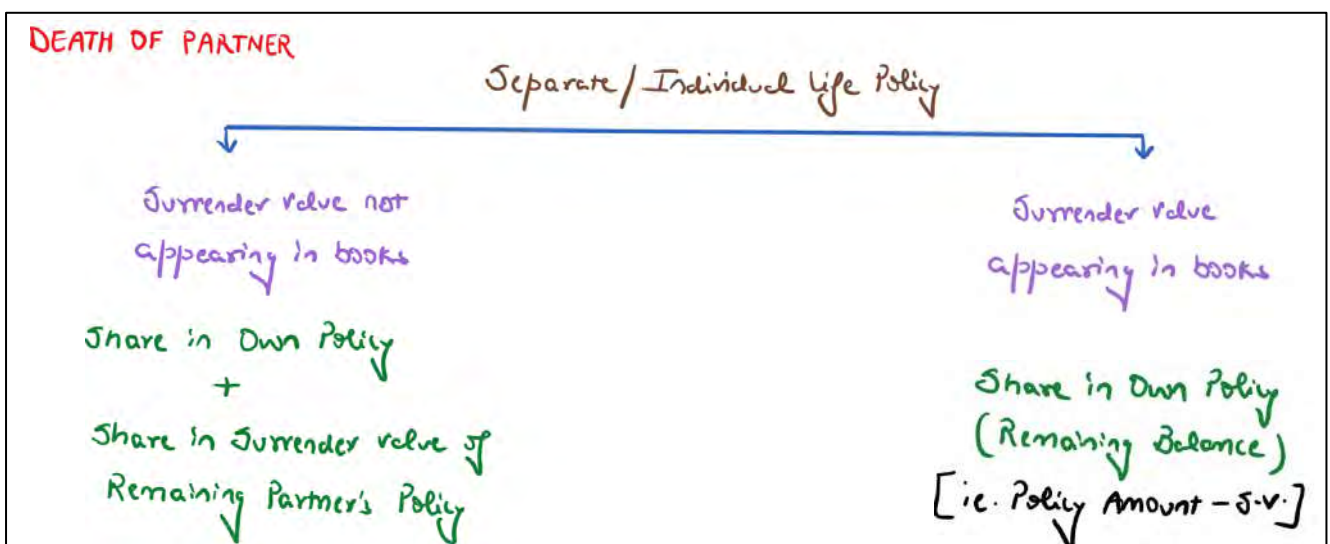 DEATH OF PARTNER
Separate/Individual Life Policy
Surrender value not
appearing in books
Share in Own Policy
+
Share in Surrender value of
Remaining Partner's Policy
Surrender value
appearing in books
Share in Own Policy
(Remaining Balance)
[ie. Policy Amount - S.V.]